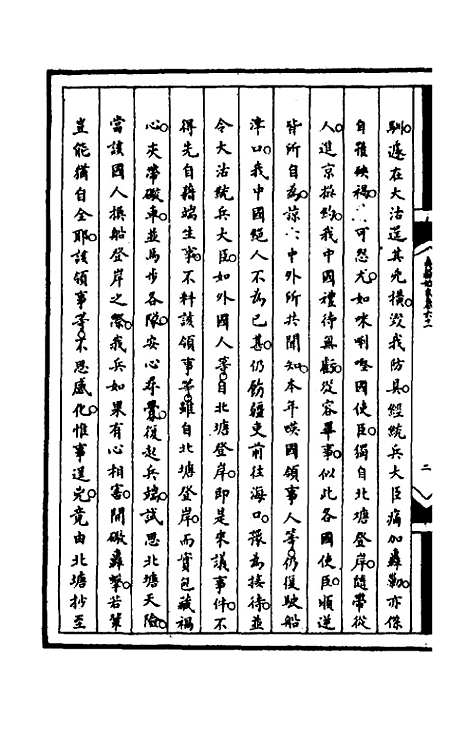 馴遽在大沽逞其兇橫毀我防具經統兵大臣痛加轟勦亦係
自稚殃禍可恕尤如咪唎𠸄國使臣獨自北塘登岸隨帶從
人進京換約我中國禮待無虧從容畢事似此各國使臣順逆
皆所自為諒中外所共聞知本年𠸄國領事人等仍復駛船
準口我中國絕人不為已甚仍飭疆吏前往海口豫為接待並
令大沽統兵大臣如外國人等自北塘登岸即是來議事件不
得先自藉端生事不料該領事等雖自北塘登岸而實包藏禍
心夾帶礮車並馬步各隊安心尋釁復起兵端試思北塘天險
當該國人換船登岸之際我兵如果有心相害開礮轟擊若輩
豈能猶自全耶該領事等不思感化惟事逞兇竟由北塘抄至
二